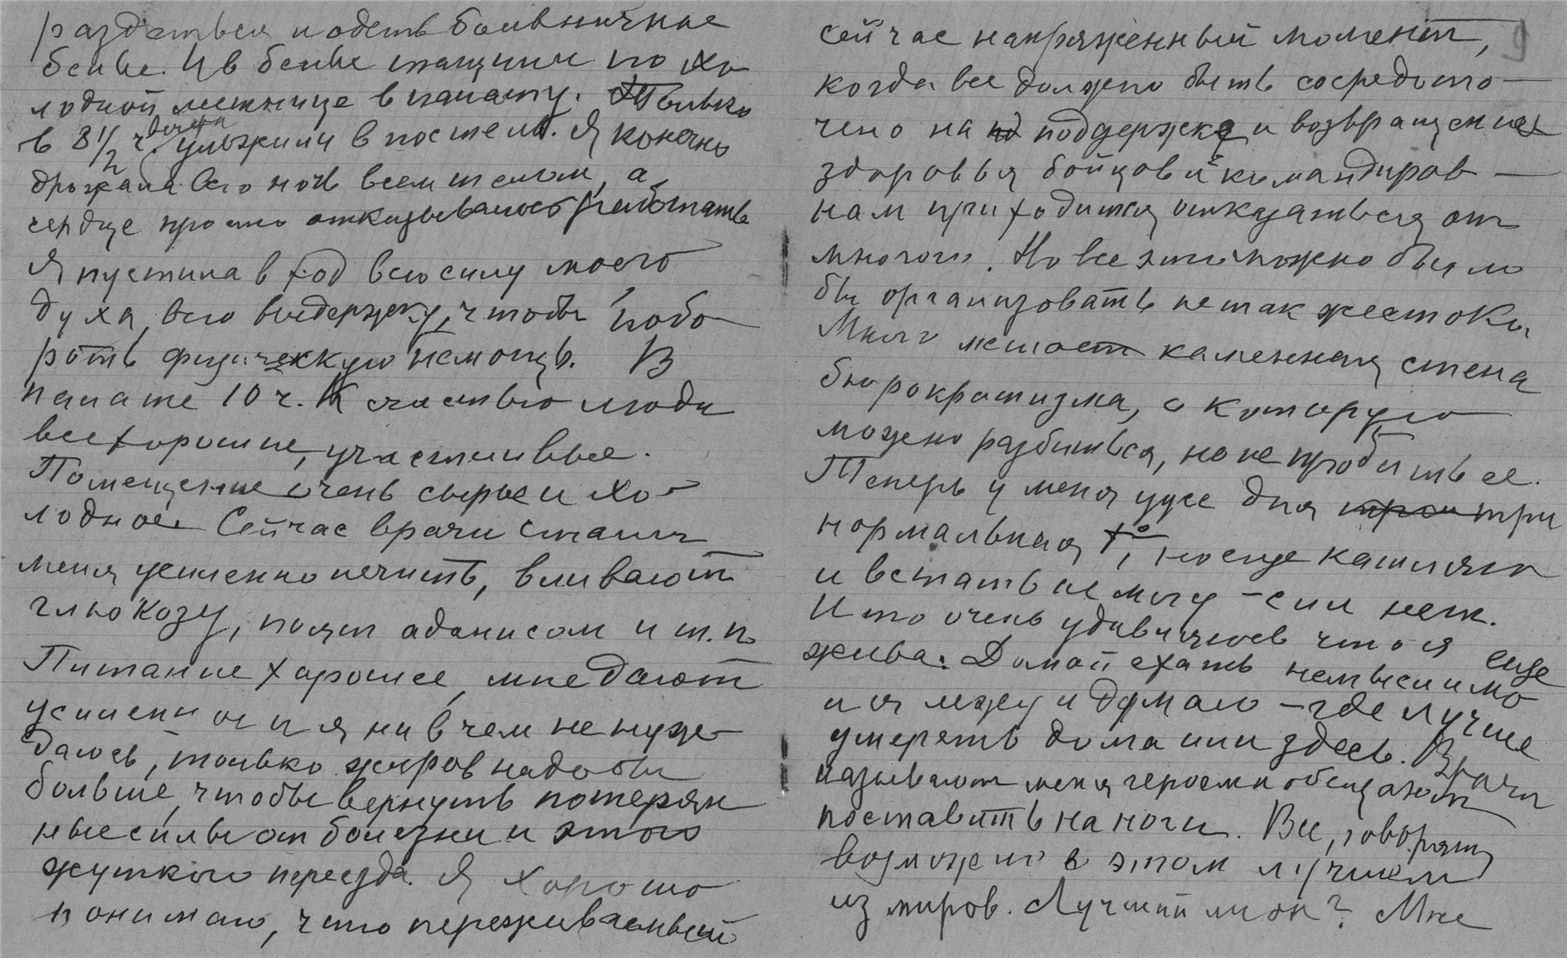 раздеться и одеть больничное
белье. И в белье тащили по хо-
лодной лестнице в палату. Только
в 8 1/2 ч. уложили в постель. Я конечно
дрожала всю ночь всем телом, а
сердце просто отказывалось работать
Я пустила в ход всю силу моего
духа, всю выдержку, чтобы побо-
роть физическую немощь. В
палате 10 ч. К счастью люди
все хорошие, участливые.
Помещение очень сырое и хо-
лодное. Сейчас врачи стали
меня усиленно лечить, вливают
глюкозу, поят адонисом и т.п.
Питание хорошее, мне дают
усиленное и я ни в чем не нуж-
даюсь, только жиров надо бы
больше, чтобы вернуть потерян
ные силы от болезни и этого
жуткого переезда. Я хорошо
понимаю, что переживаемый
9
сейчас напряженный момент,
когда все должно быть сосредото-
чено на поддержке и возвращении
здоровья бойцов и командиров —
нам приходится отказаться от
многого. Но все это можно было
бы организовать не так жестоко.
Много мешает каменная стена
бюрократизма, о которую
можно разбиться, но не пробить ее.
Теперь у меня уже дня три
нормальная t°, но еще кашляю
и встать не могу – сил нет.
И то очень удивляюсь что я еще
жива. Домой ехать немыслимо
и я лежу и думаю – где лучше
умереть дома или здесь. Врачи
называют меня героем и обещают
поставить на ноги. Все, говорят,
возможно в этом лучшем
из миров. Лучший ли он? Мне